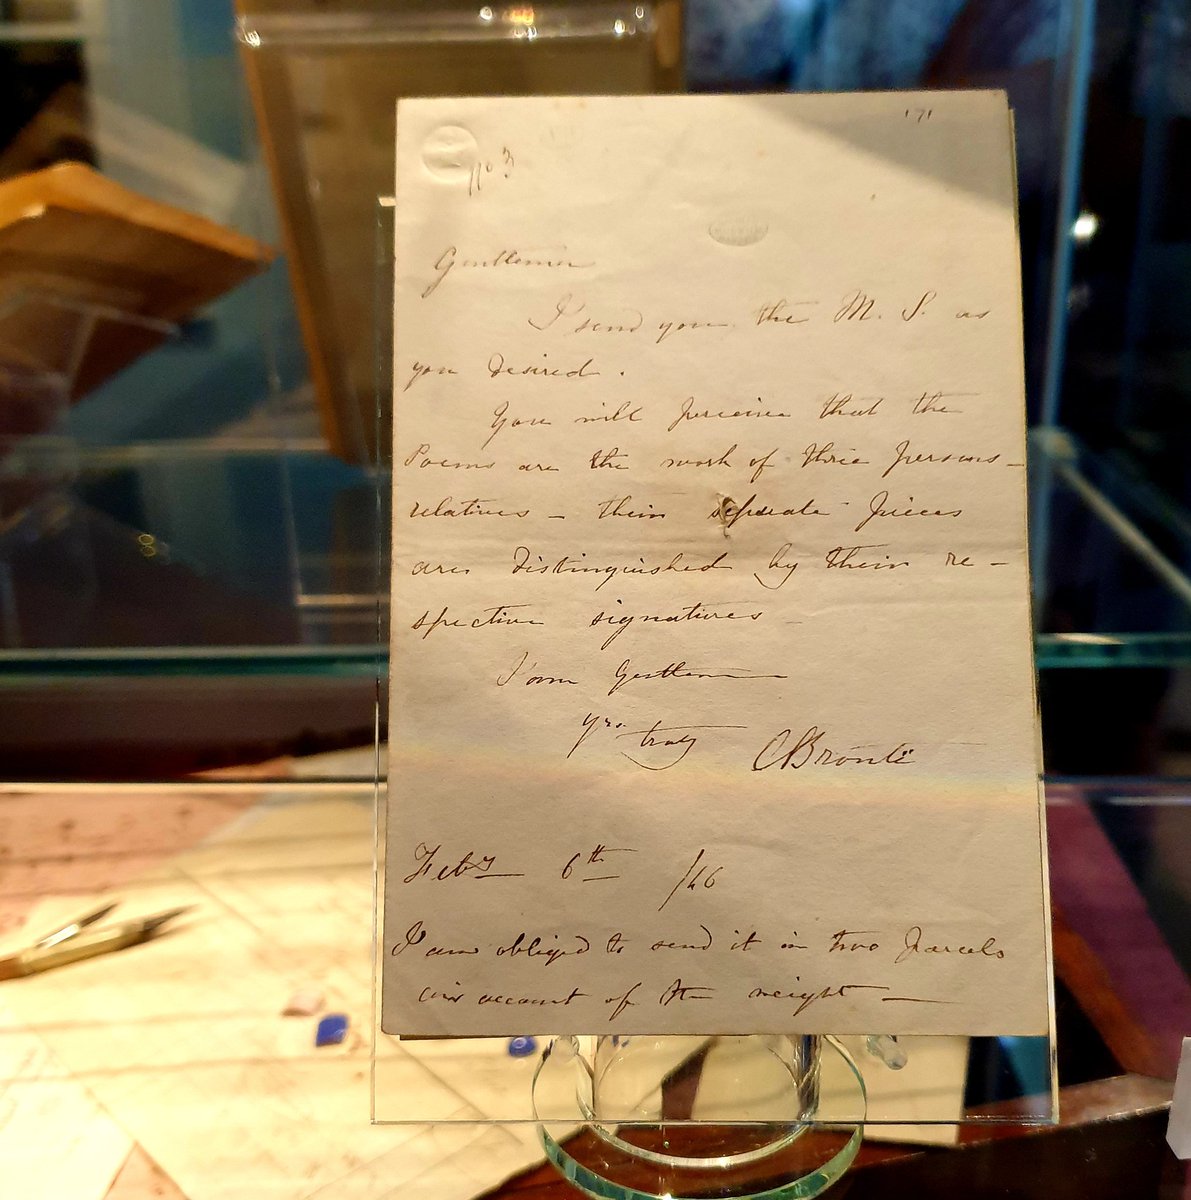 171
No 3
Gentlemen
I send you the M. S. as
you desired.
You will perceive that the
Poems are the work of three persons –
relatives – their separate pieces
are distinguished by their re –
spective signatures –
I am Gentlemen
Yrs. truly CBrontë
Feby 6th /46
I am obliged to send it in two parcels
on account of the weight –